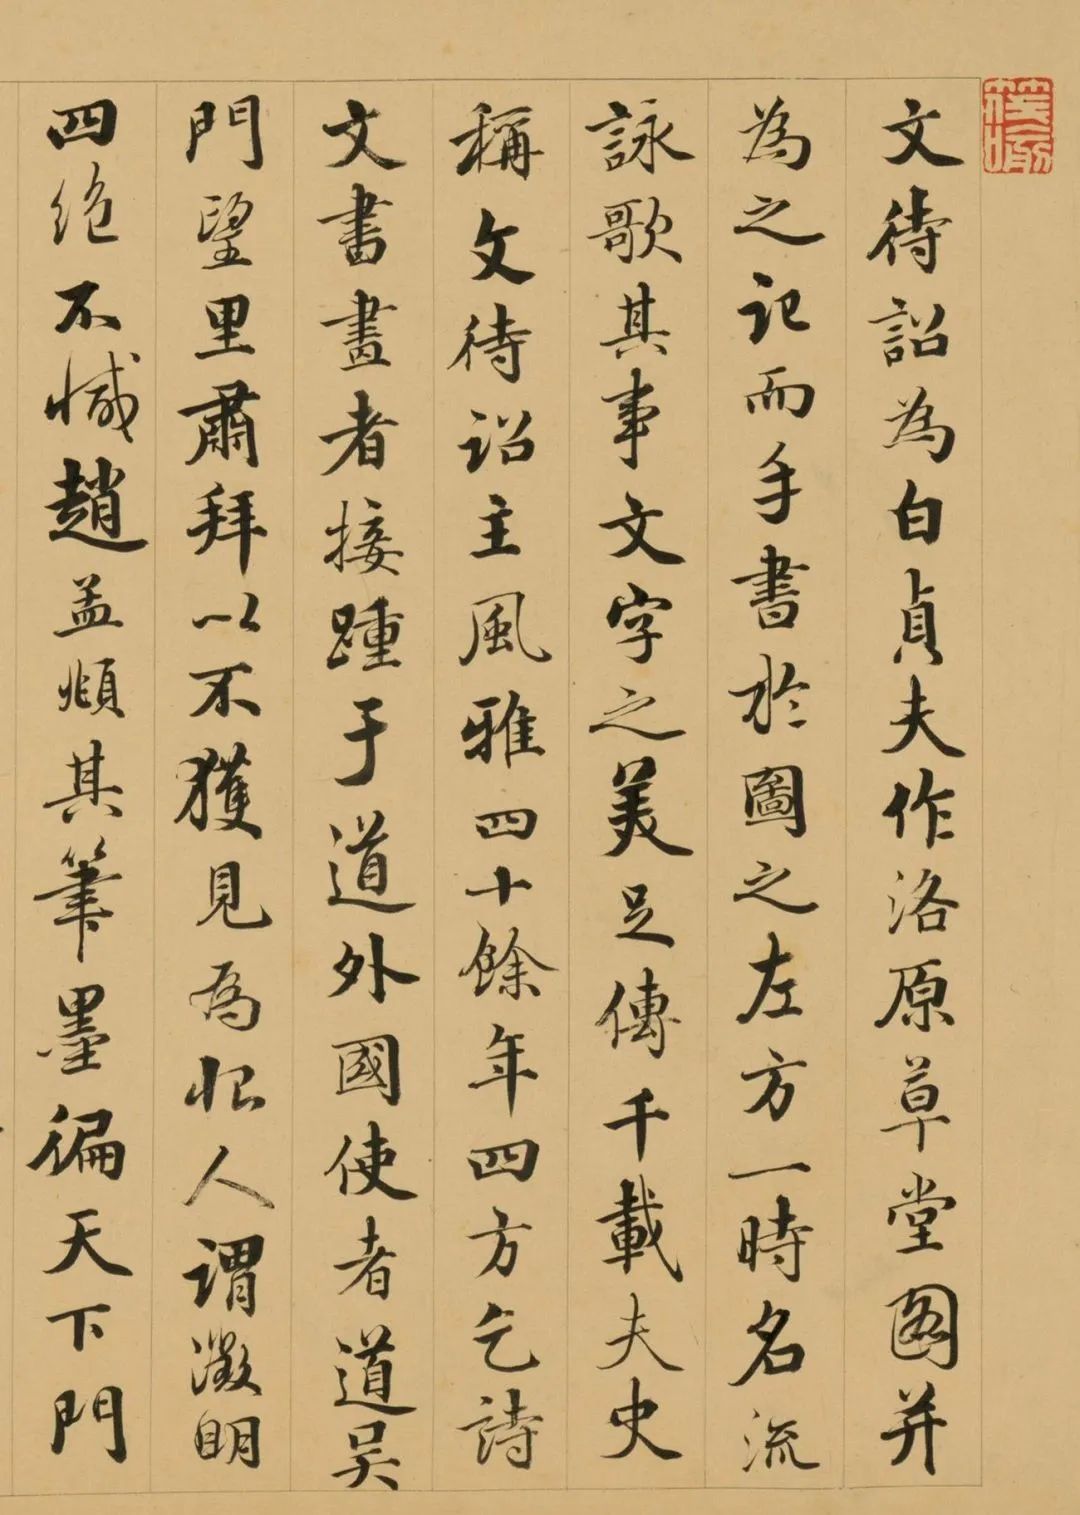 文待詔為白貞夫作洛原草堂圖并
為之記而手書於圖之左方一時名流
詠歌其事文字之美足傳千載夫史
稱文待詔主風雅四十餘年四方乞詩
文書畫者接踵于道外國使者道吳
門望里肅拜以不獲見為恨人謂澂明
四絕不憾趙孟頫其筆墨徧天下門